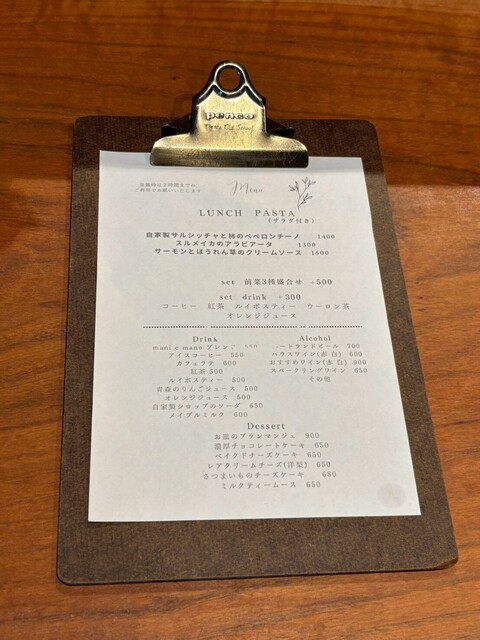 penco
On the Old School
混雑時は2時間までの
ご利用でお願いいたします
Menu
LUNCH PASTA
(サラダ付き)
自家製サルシッチャと柿のペペロンチーノ 1400
スルメイカのアラビアータ 1300
サーモンとほうれん草のクリームソース 1500
set 前菜3種盛合せ +500
set drink +300
コーヒー 紅茶 ルイボスティー ウーロン茶
オレンジジュース
Drink
mani e mano ブレンド 550
アイスコーヒー 550
カフェラテ 600
紅茶 500
ルイボスティー 500
青森のりんごジュース 500
オレンジジュース 500
自家製シロップのソーダ 650
メイプルミルク 600
Alcohol
ハートランドビール 700
ハウスワイン(赤 白) 600
おすすめワイン(赤 白) 900
スパークリングワイン 650
その他
Dessert
お皿のブランマンジェ 900
濃厚チョコレートケーキ 650
ベイクドチーズケーキ 650
レアクリームチーズ(洋梨) 650
さつまいものチーズケーキ 680
ミルクティームース 650